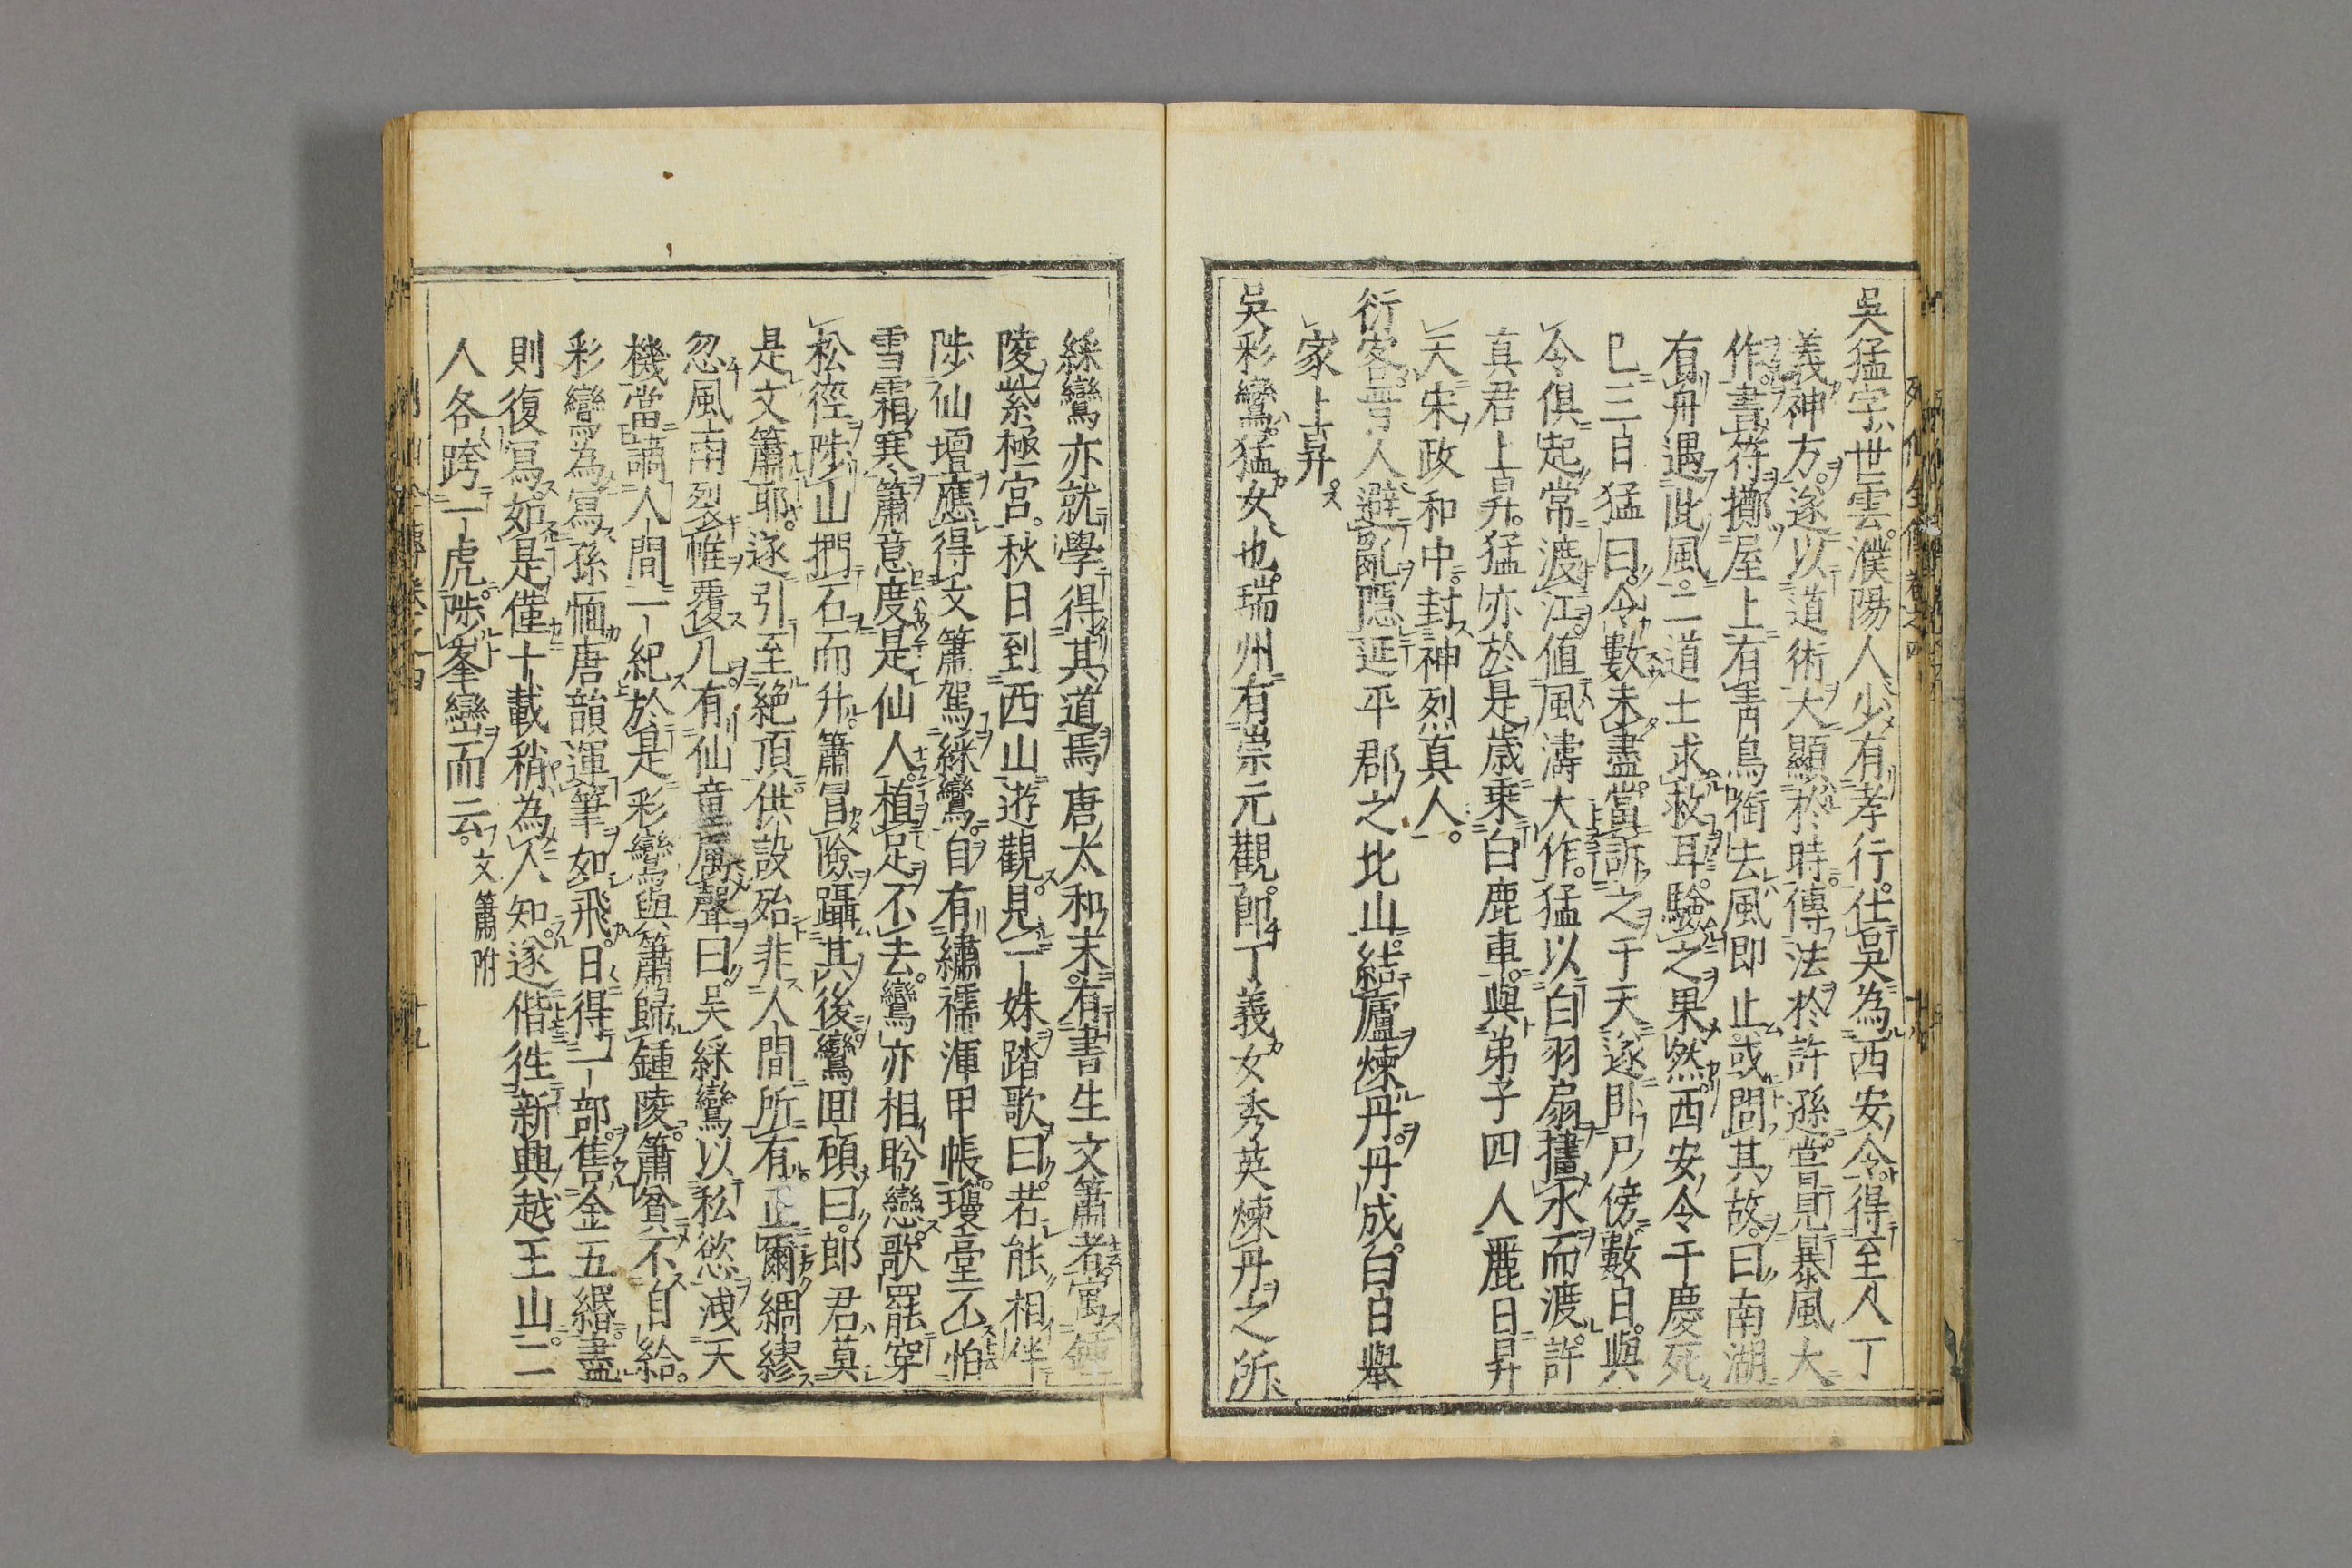 吳猛字世雲濮陽人少有孝行仕吳為西安令得至人丁
義神方遂以道術大顯於時傳法於許遜嘗見暴風大
作書符擲屋上有青鳥銜去風即止或問其故曰南湖
有舟遇此風二道士求救耳驗之果然西安令干慶死
已三日猛曰令數未盡當訴之于天遂臥尸傍數日與
令俱起常渡江值風濤大作猛以白羽扇畫水而渡許
真君上昇猛亦於是歲乘白鹿車與弟子四人麗日昇
天宋政和中封神烈真人
衍客晉人避亂隱延平郡之北山結廬煉丹丹成白日舉
家上昇
吳彩鸞猛女也瑞州有崇元觀即丁義女秀英煉丹之所
綵鸞亦就學得其道焉唐太和末有書生文簫者寓鍾
陵紫極宮秋日到西山遊觀見一姝踏歌曰若能相伴
陟仙壇應得文簫駕綵鸞自有繡襦渾甲帳瓊臺不怕
雪霜寒簫意度是仙人植足不去鸞亦相盼戀歌罷穿
松徑陟山捫石而升簫冒險躡其後鸞回頋曰郎君莫
是文簫耶遂引至絕頂供設殆非人間所有正爾綢繆
忽風雨裂帷覆几有仙童厲聲曰吳綵鸞以私慾洩天
機當謫人間一紀於是彩鸞與簫歸鍾陵簫貧不自給
彩鸞為寫孫愐唐韻運筆如飛日得一部售金五緡盡
則復寫如是僅十載稍為人知遂偕徃新興越王山二
人各跨一虎陟峯巒而云 文簫附